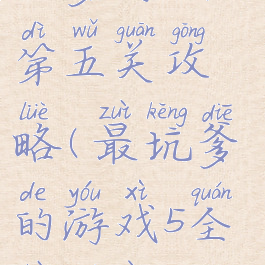 dì wǔ guān gōng
第五关攻
lüè zuì kēng diē
略(最坑爹
de yóu xì quán
的游戏5全